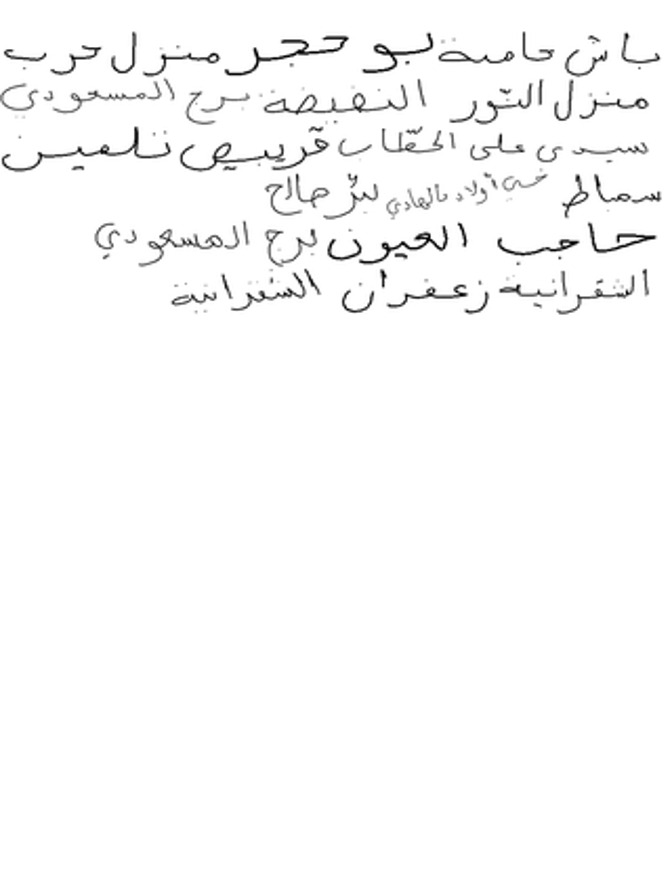 باش حامبة بو حجر منزل حرب
منزل النّور النفيضة برج المسعودي
سيدي على الحطّاب قريبيص تلمين
حي أولاد بالهادي بئر صالح
حاجب العيون برج المسعودي
الشقرانية زعفران الشقرانية